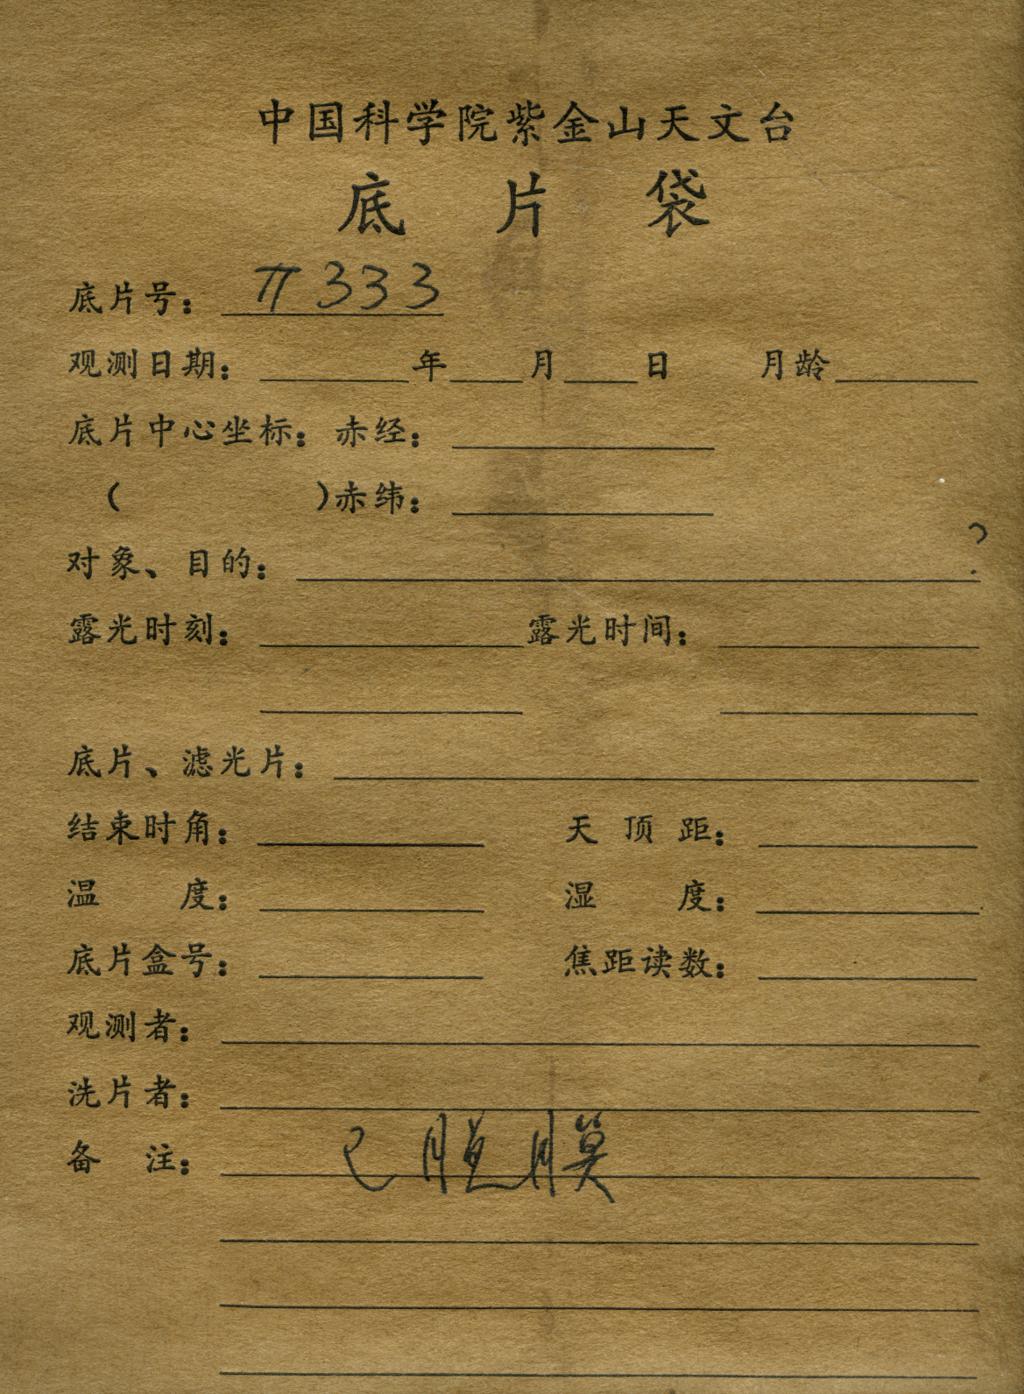 中国科学院紫金山天文台
底片袋
底片号：π333
观测日期：年月日 月龄
底片中心坐标：赤经：
（ ）赤纬：
对象、目的：
露光时刻：露光时间：
底片、滤光片：
结束时角：天顶距：
温度：湿度：
底片盒号：焦距读数：
观测者：
洗片者：
备注：已脱膜